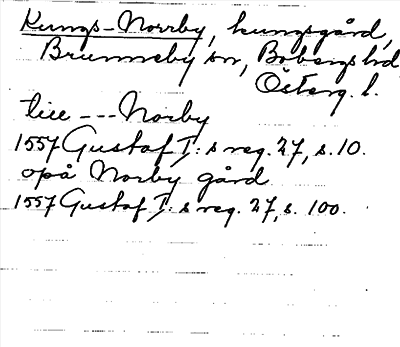 Kungs-Norrby, kungsgård,
Brunneby sn, Bobergs hd
Österg. l.
till --- Norby
1557 Gustaf I: s reg. 27, s. 10.
opå Norby gård
1557 Gustaf I: s reg. 27, s. 100.